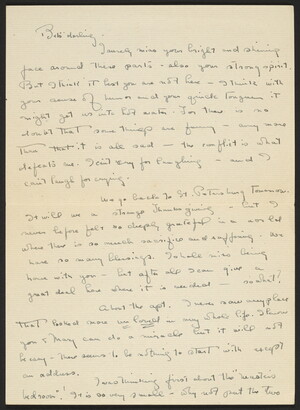 Bebe darling -
I surely miss your bright and shining
face around these parts - also your strong spirit.
But I think it best you are not here - I think with
your sense of humor and your quick tongue it
might get us into hot water. For there is no
doubt that some things are funny - any more
than that it is all sad - the conflict is what
defeats me. I can't cry for laughing - and I
can't laugh for crying.
We go back to St. Petersburg tomorrow.
It will be a strange Thanksgiving - but I
never before felt so deeply grateful in a world
where there is so much sacrifice and suffering - we
have so many blessings. I shall miss being
here with you - but after all I can give a
great deal here where it is needed - so what!
About the apt. I never saw any place
that looked more un loved in my whole life. I know
you & Mary can do a miracle but it will not
be easy - there seems to be nothing to start with except
an address.
I was thinking first about the "
bedroom". It is so very small - why not put the two